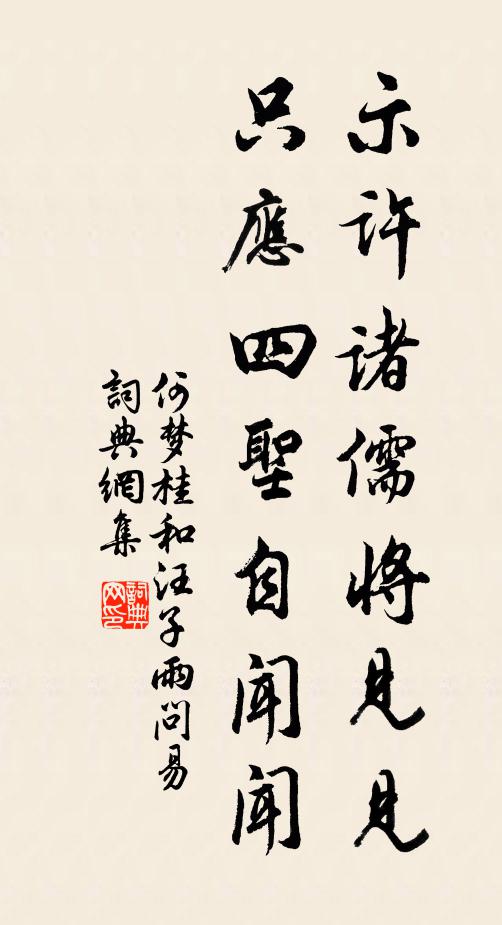 示許諸儒將見見
只應四聖自聞聞
何梦桂和汪子雨問易
詞典網集
詞典
网印